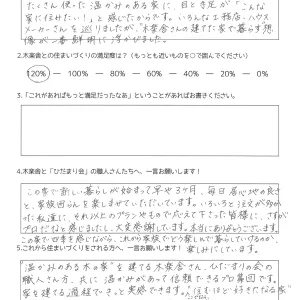 たくさん使った温かみのある家に、目と足が"こんな
家に住みたい!"と感じたからです。いろんな工務店、ハウス
メーカーさんを巡りましたが、木楽舎の建てた家で暮らす想
像が一番鮮明に浮かびました。
2.木楽舎との住まいづくりの満足度は?(もっとも近いものを○で囲んでください)
120% ― 100% ― 80% ― 60% ― 40% ― 20% ― 0%
3.「これがあればもっと満足だったなあ」ということがあればお書きください。
4.木楽舎と「ひだまり会」の職人さんたちへ、一言お願いします!
この家で新しい暮らしが始まって早や3ヶ月、毎日居心地の良さ
と、家族団らんを楽しませていただいています。いろいろと注文が多か
った私達に、それ以上のプランやもので応えて下さった皆様に、さすが
プロだなと感じました。大変感謝しています。本当にありがとうございます。
この家で四季を感じながら、これから家族でどう楽しんで暮らしていけるのか、
楽しみにしています。
5.これから住まいづくりをされる方へ、一言お願いします!
温かみのある木の家を建てる木楽舎さん、ひだまりの会の
職人さん方、共に温かみがあって信頼できるプロ集団です。
家を建てる過程できっと実感できます。